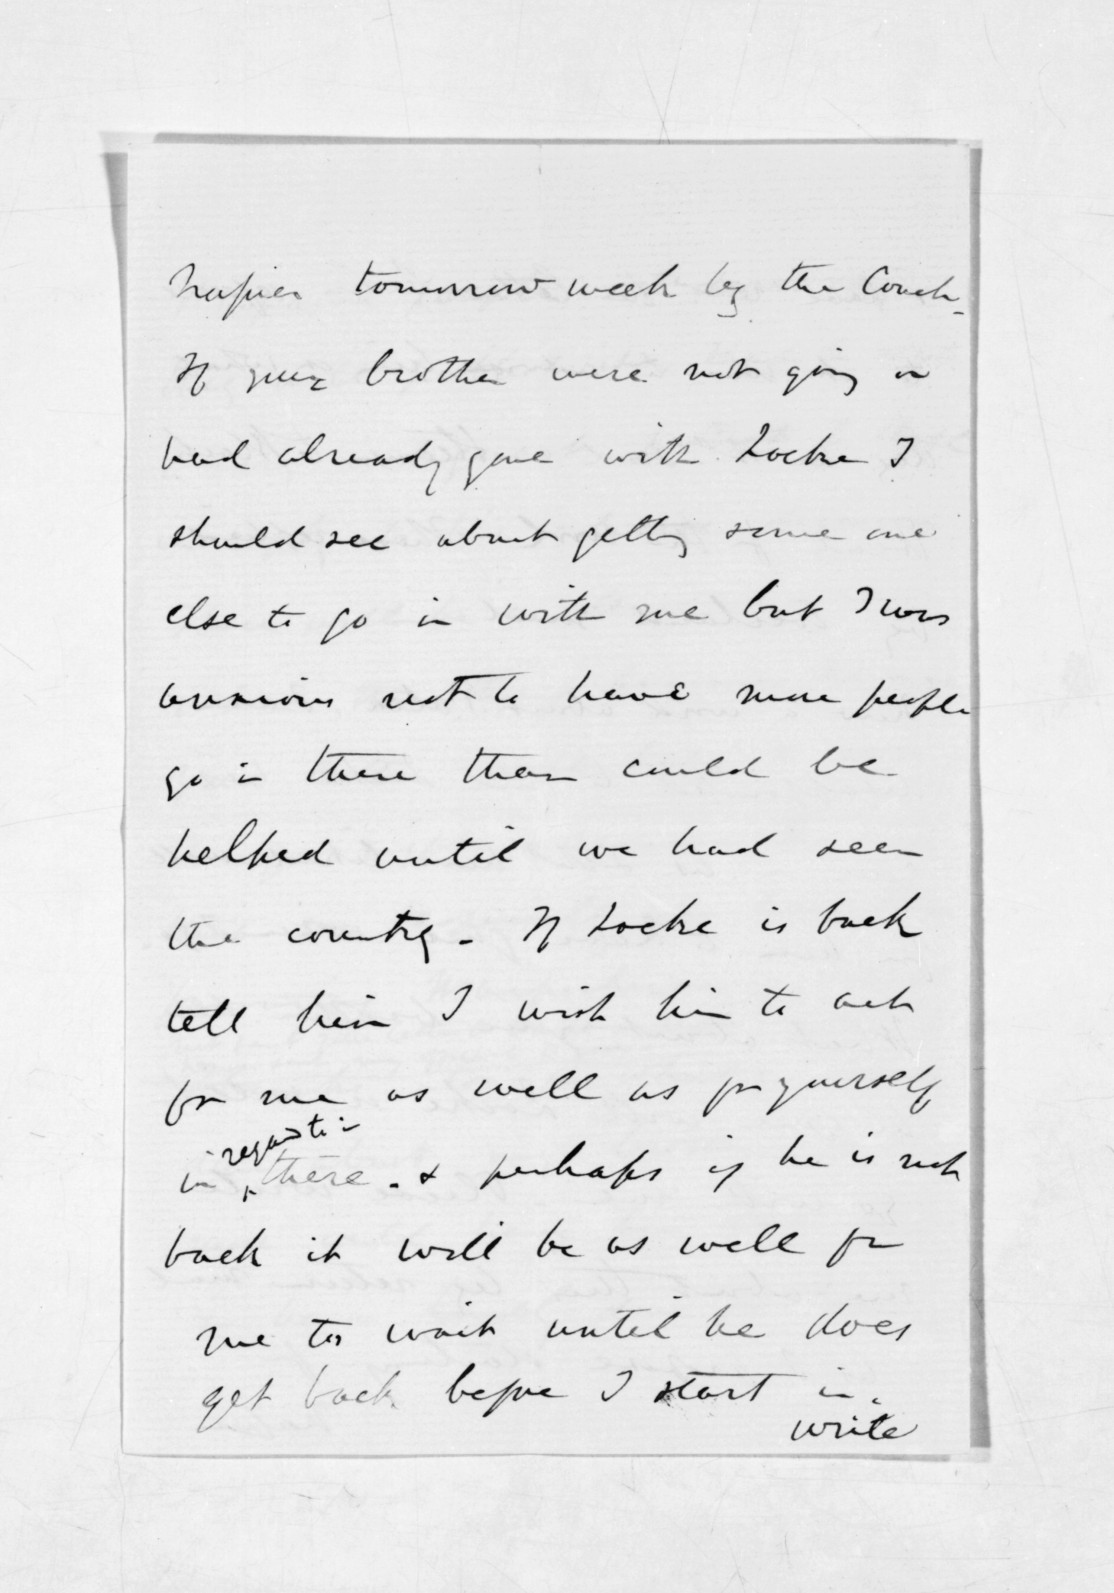 Napier tomorrow week by the Coach -
If your brother were not going or
had already gone with Locke I
should see about getting some one
else to go in with me but I was
anxious not to have more people
go in there than could be
helped until we had seen
the country - If Locke is back
tell him I wish him to act
for me as well as for yourself
regard to in
in there - & perhaps if he is not
back it will be as well for
me to wait until he does
get back before I start in.
write